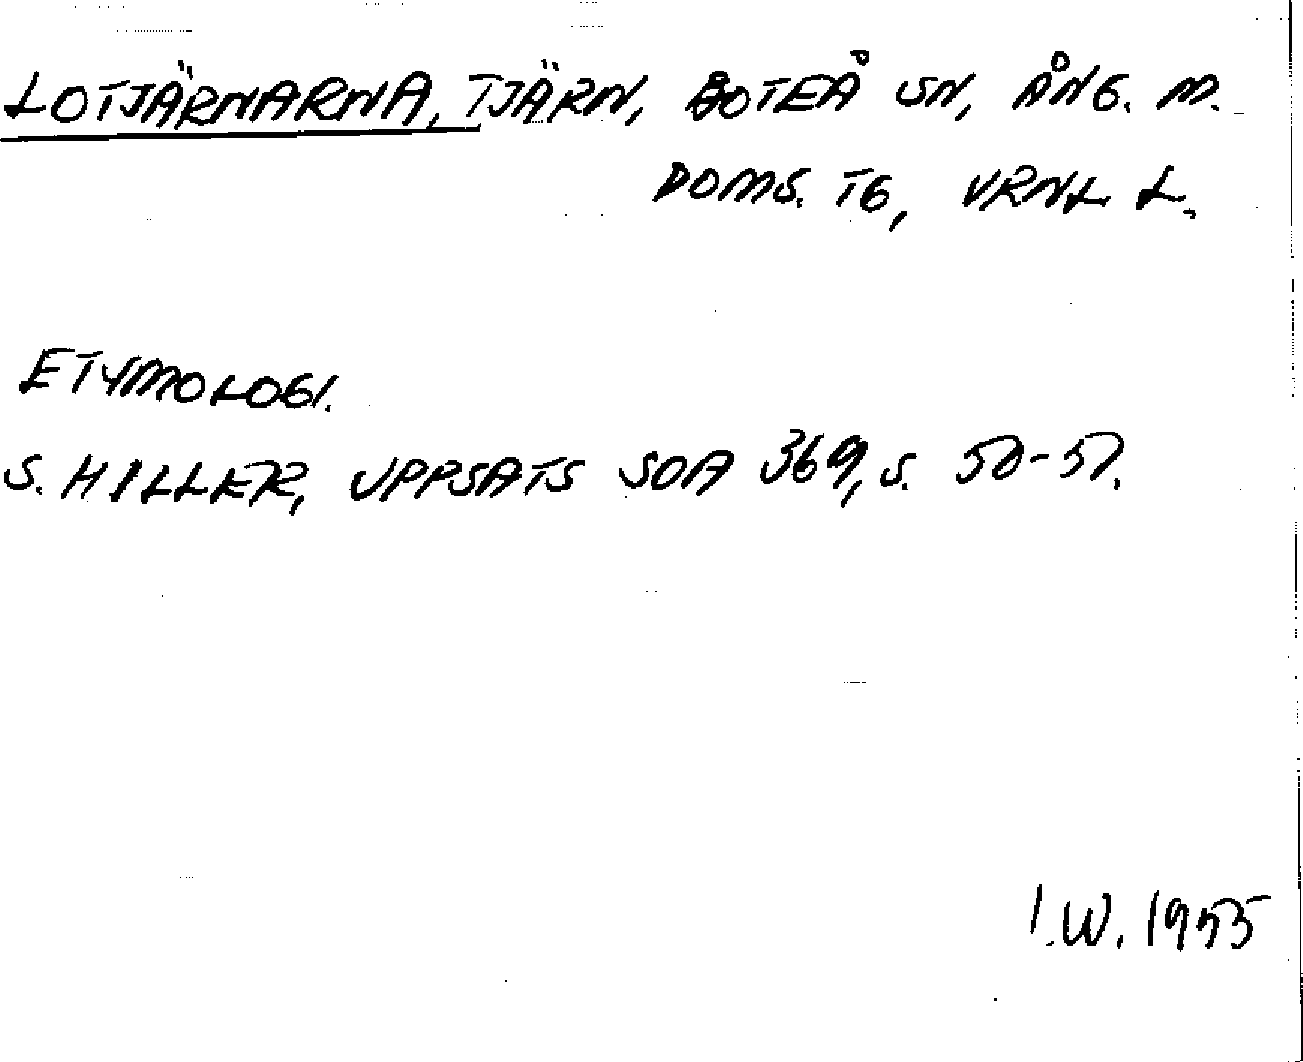 LOTJÄRNARNA, TJÄRN, BOTEÅ SN, ÅNG. M.
DOMS. TG, VRNL L.
ETYMOLOGI.
S. HILLER, UPPSATS SOA 369, S. 50-51.
I.W. 1955